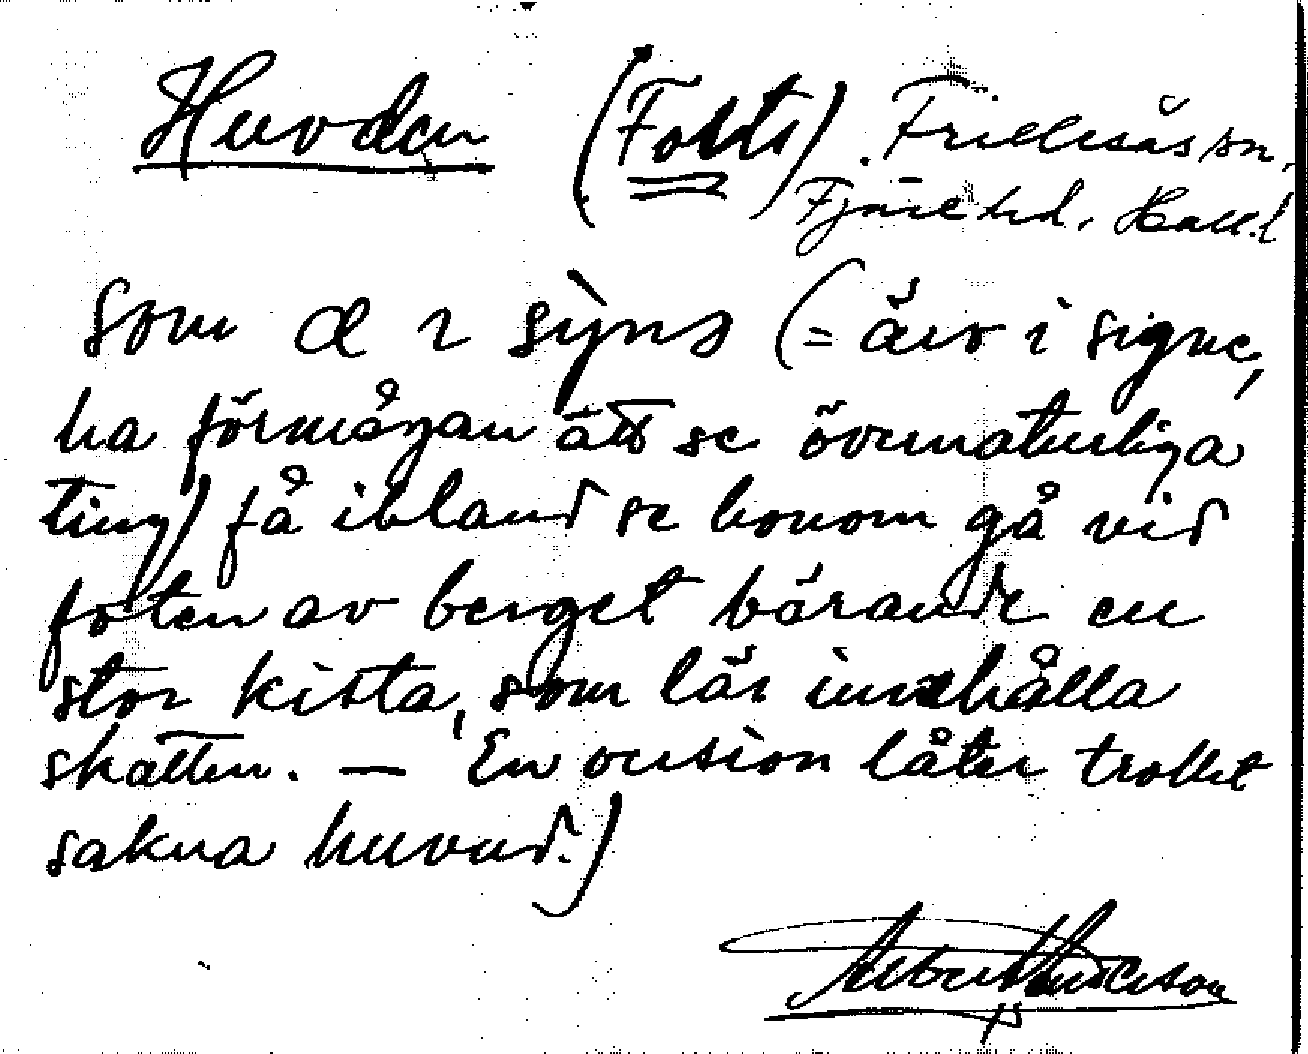 Huvden (Forts). Frillesås sn,
Fjäre hd. Hall.
som æ i sÿns (= äro i signe,
ha förmågan att se övernaturliga
ting) få ibland se honom gå vid
foten av berget bärande en
stor kista, som lär innehålla
skatten. — En version låter trollet
sakna huvud.)